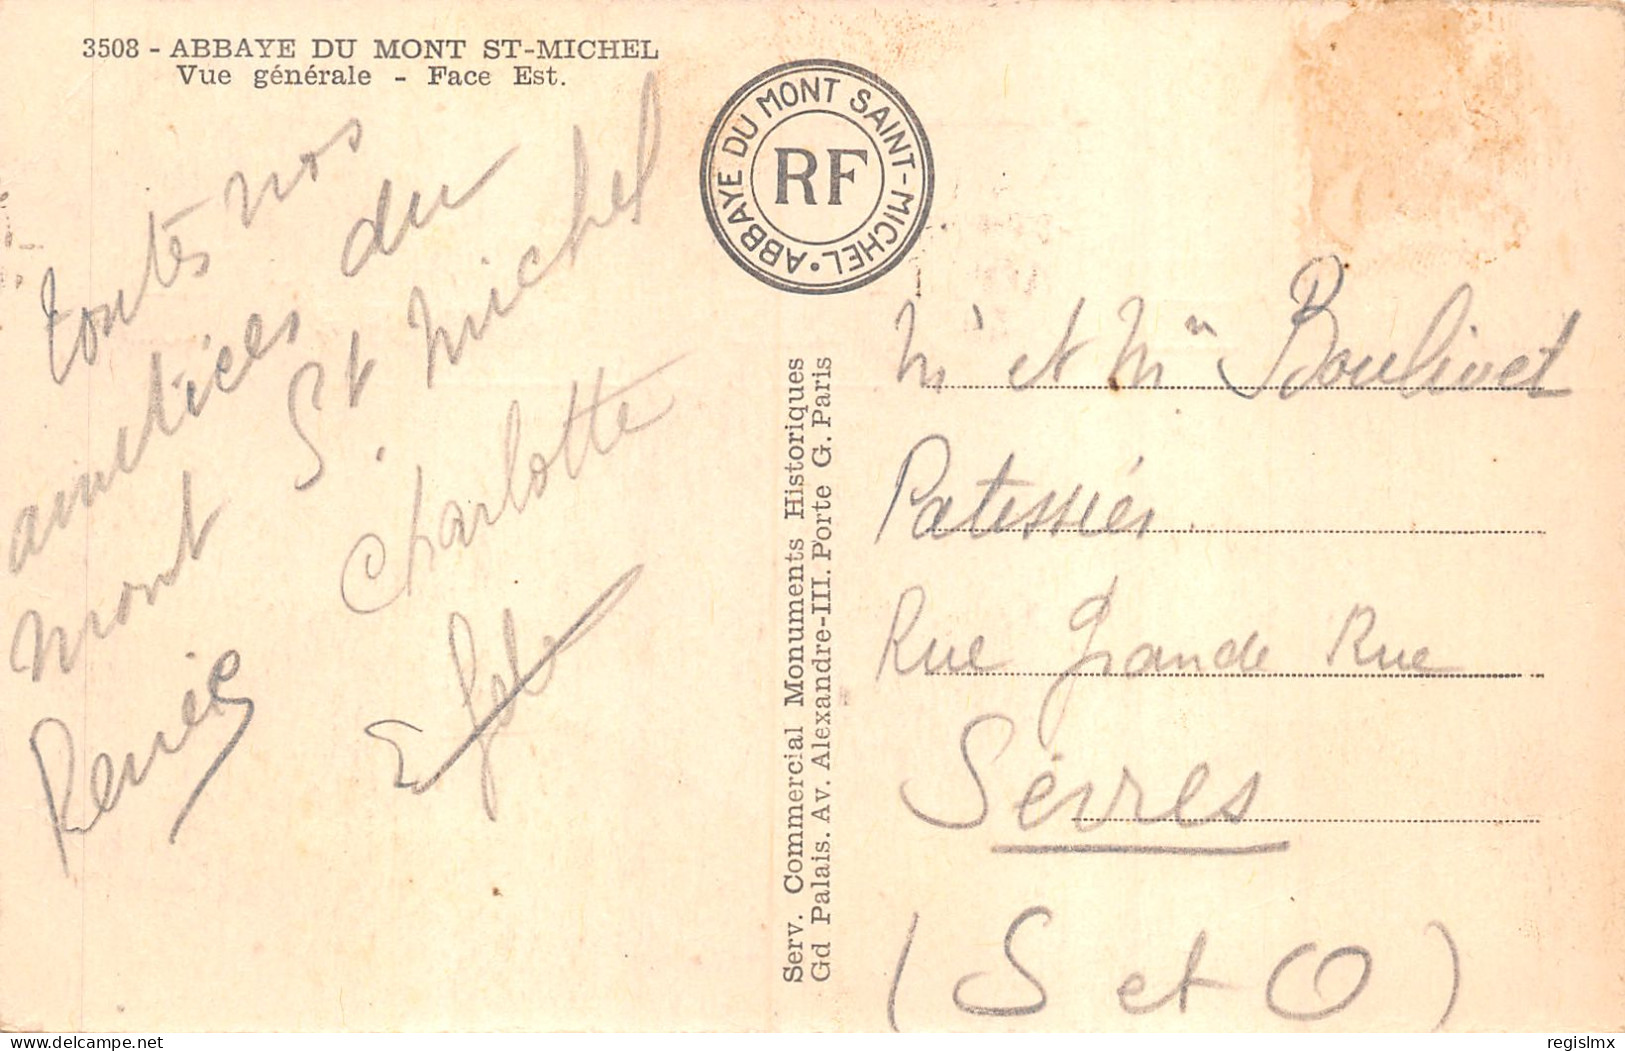 3508 - ABBAYE DU MONT ST-MICHEL
Vue générale - Face Est.
toutes nos
amitiées du
Mont St Michel
Charlotte
Renée
ABBAYE DU MONT SAINT-MICHEL •
RF
Serv. Commercial Monuments Historiques
Gd Palais. Av. Alexandre-III. Porte G. Paris
Mr et Mm Boulivet
Patissiér
Rue Grande Rue
Sèvres
(S et O)
delcampe.net
regislmx